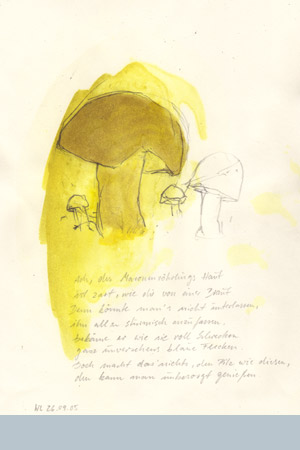 Ach, des Maronenröhrlings Haut
ist zart, wie die von einer Braut
Denn könnte man's nicht unterlassen,
ihn allzu stürmisch anzufassen.
bekäme er wie sie voll Schrecken
ganz unversehens blaue Flecken
Doch macht das nichts, den Pilz wie diesen,
den kann man unbesorgt genießen
26.09.05